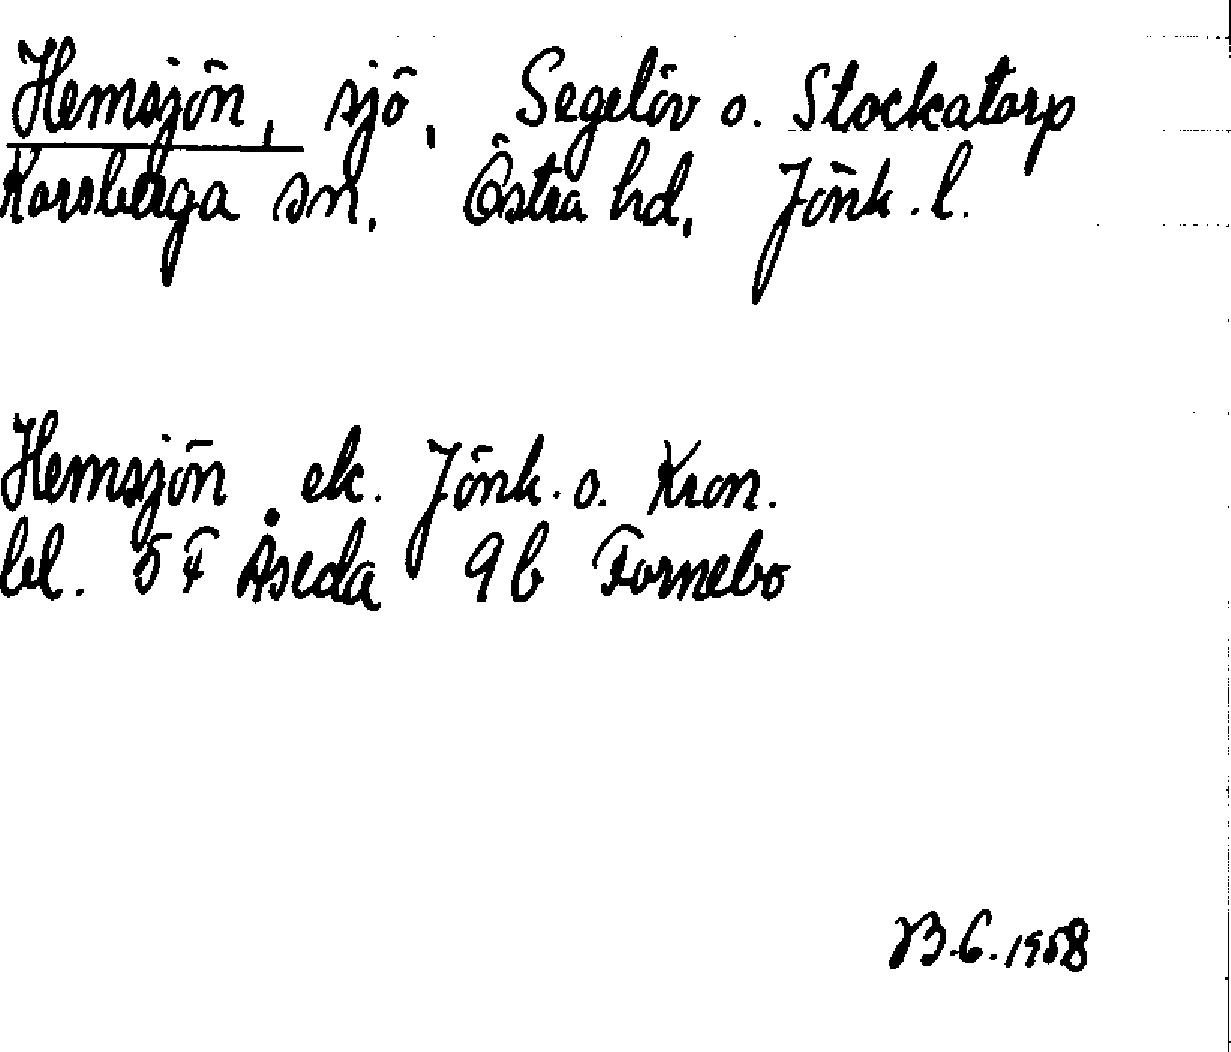 Hemsjön, sjö, Segelöv o. Stockatorp
Korsberga sn, Östra hd, Jönk. l.
Hemsjön ek. Jönk. o. Kron.
bl. 5F Åseda 9b Fornebo
B.G. 1958